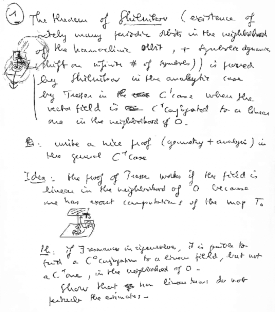 ① The theorem of Shilnikov (existence of
many periodic orbits in the neighborhood
of the homoclinic orbit, + symbolic dynamics
shift on infinite # of symbols)) is proved
by Shilnikov in the analytic case
by Tresser in C¹ case when the
vector field is C¹ conjugated to a linear
one in the neighborhood of O.
write a nice proof (geometry + analysis) in
the general C¹ case
Idea: the proof of Tresser works if the field is
linear in the neighborhood of O because
one has exact computations of the map T₀
if ∃ resonances in eigenvalues, it is possible to
find a C⁰ conjugation to a linear field, but not
a C¹ one, in the neighborhood of O.
Show that non linear terms do not
perturb the estimates.